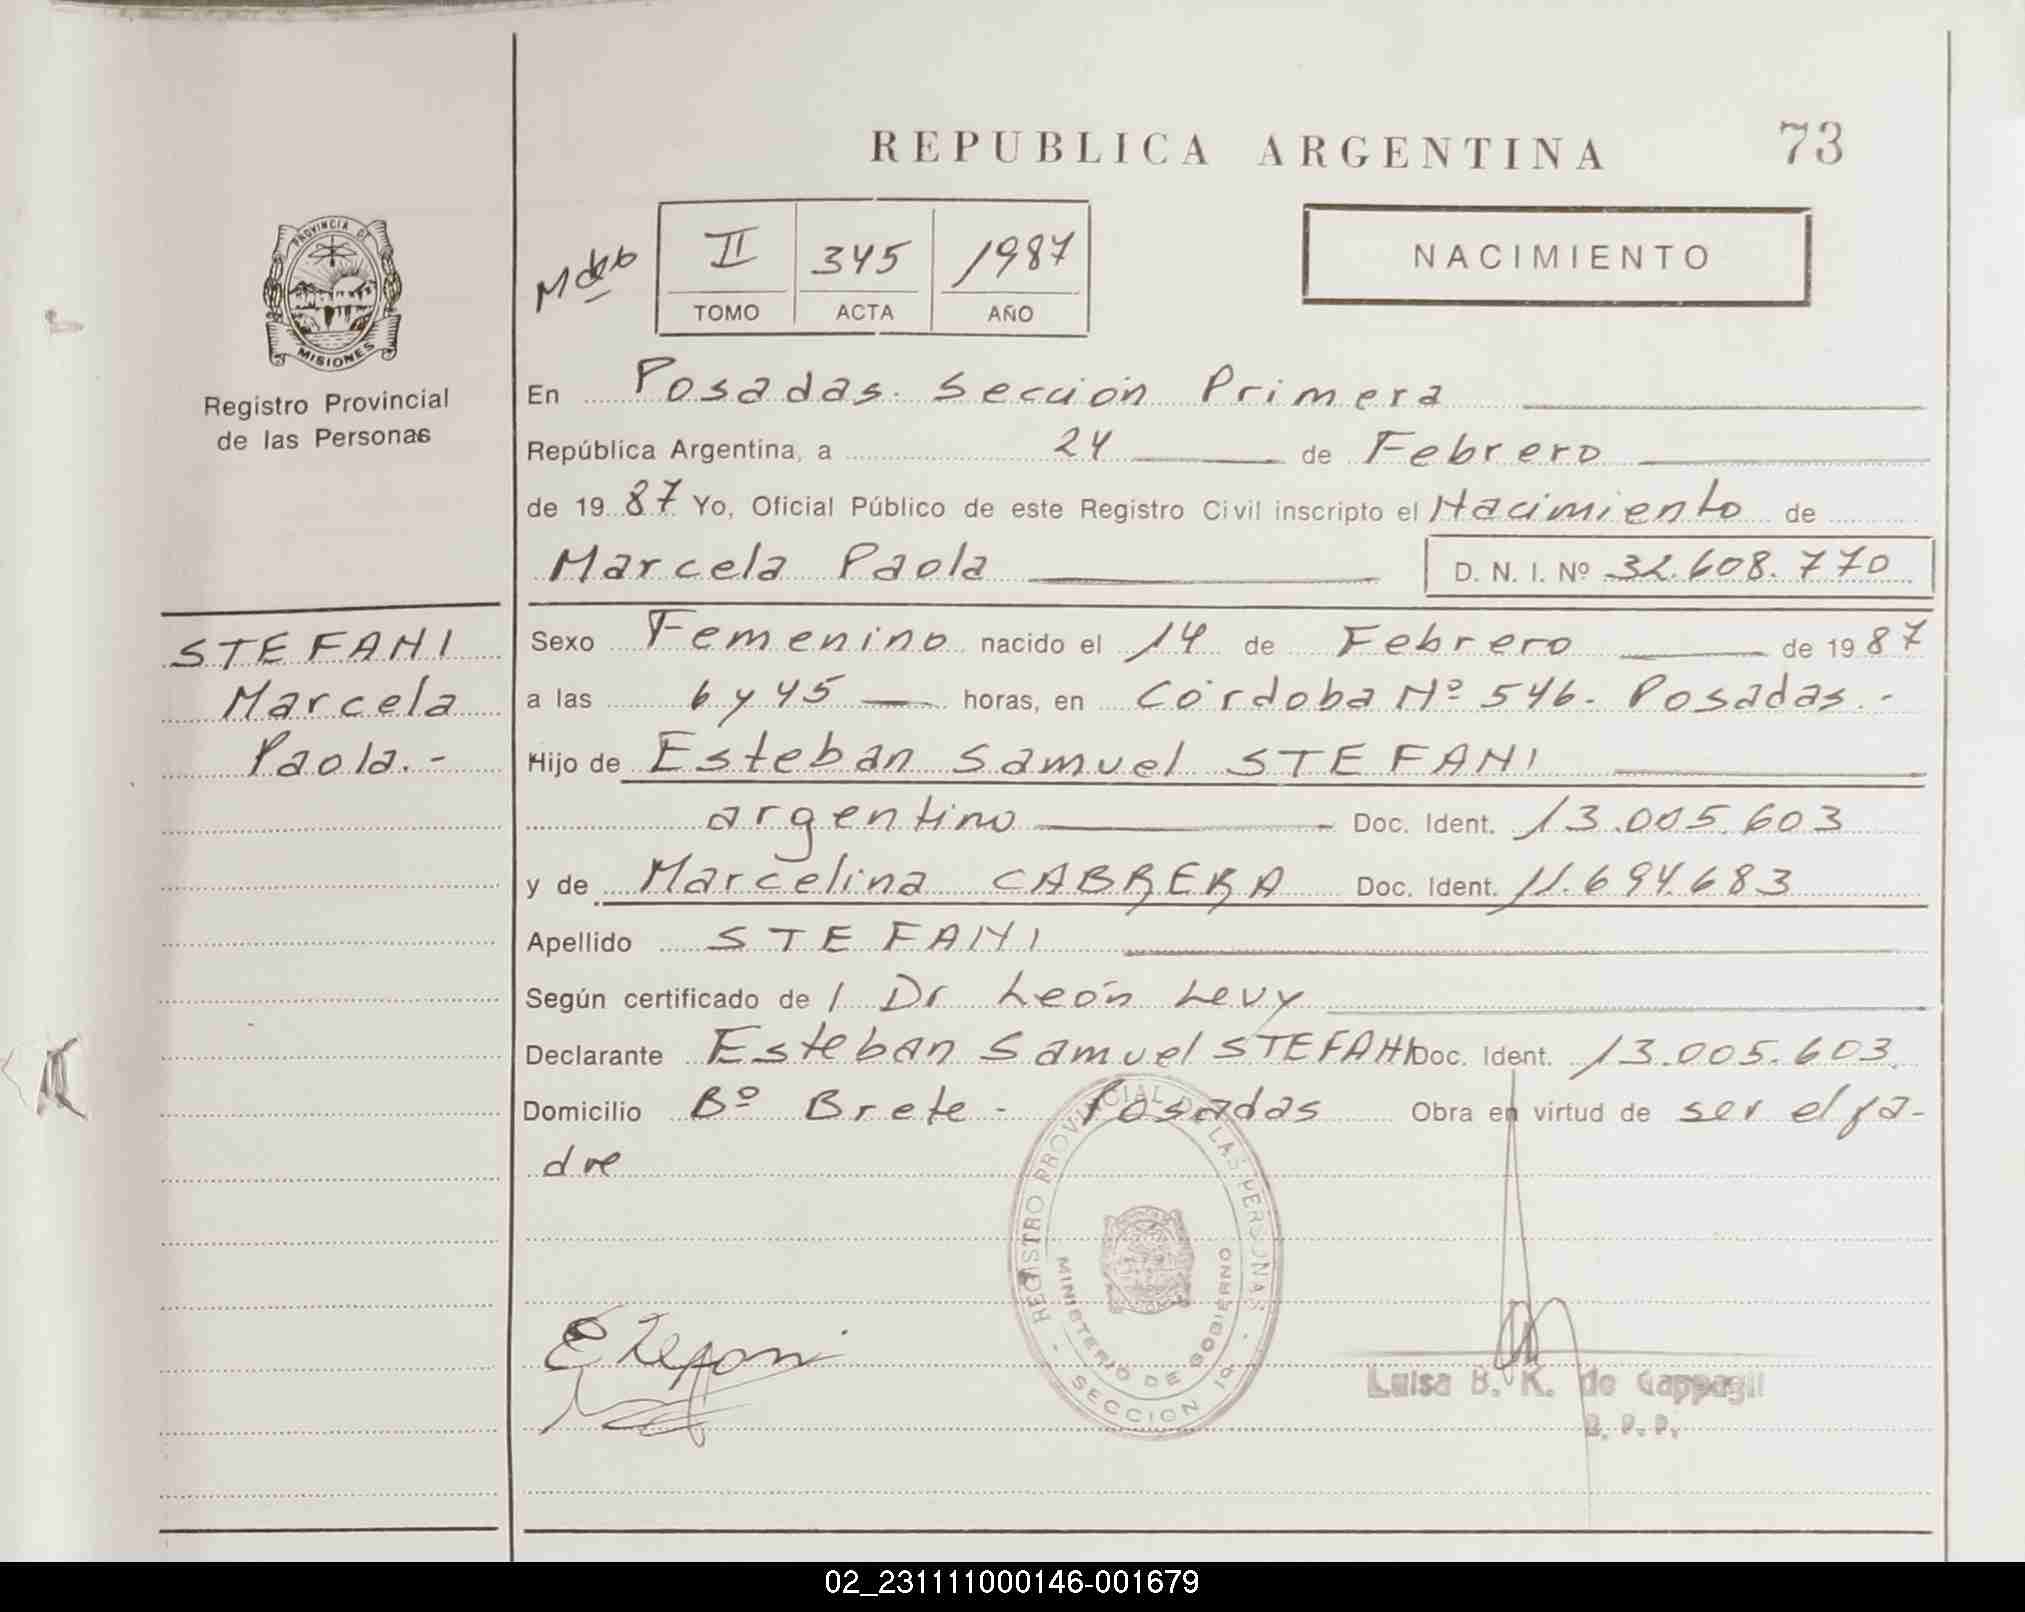 REPUBLICA ARGENTINA 73
PROVINCIA DE
MISIONES
Registro Provincial
de las Personas
II 345 1987
TOMO ACTA AÑO
NACIMIENTO
En Posadas. Sección Primera
República Argentina, a 24 de Febrero
de 1987 Yo, Oficial Público de este Registro Civil inscripto el Nacimiento de
Marcela Paola D. N. I. Nº 32.608.770
STEFANI
Marcela
Paola.-
Sexo Femenino nacido el 14 de Febrero de 1987
a las 6 y 45 horas, en Córdoba Nº 546- Posadas.-
Hijo de Esteban Samuel STEFANI
argentino Doc. Ident. 13.005.603
y de Marcelina CABRERA Doc. Ident. 11.694.683
Apellido STEFANI
Según certificado de / Dr León Levy
Declarante Esteban Samuel STEFANI Doc. Ident. 13.005.603
Domicilio Bº Brete - Posadas Obra en virtud de ser el pa-
dre
REGISTRO PROVINCIAL DE LAS PERSONAS
MINISTERIO DE GOBIERNO
SECCION 1ª
Luisa B. K. de
02_231111000146-001679